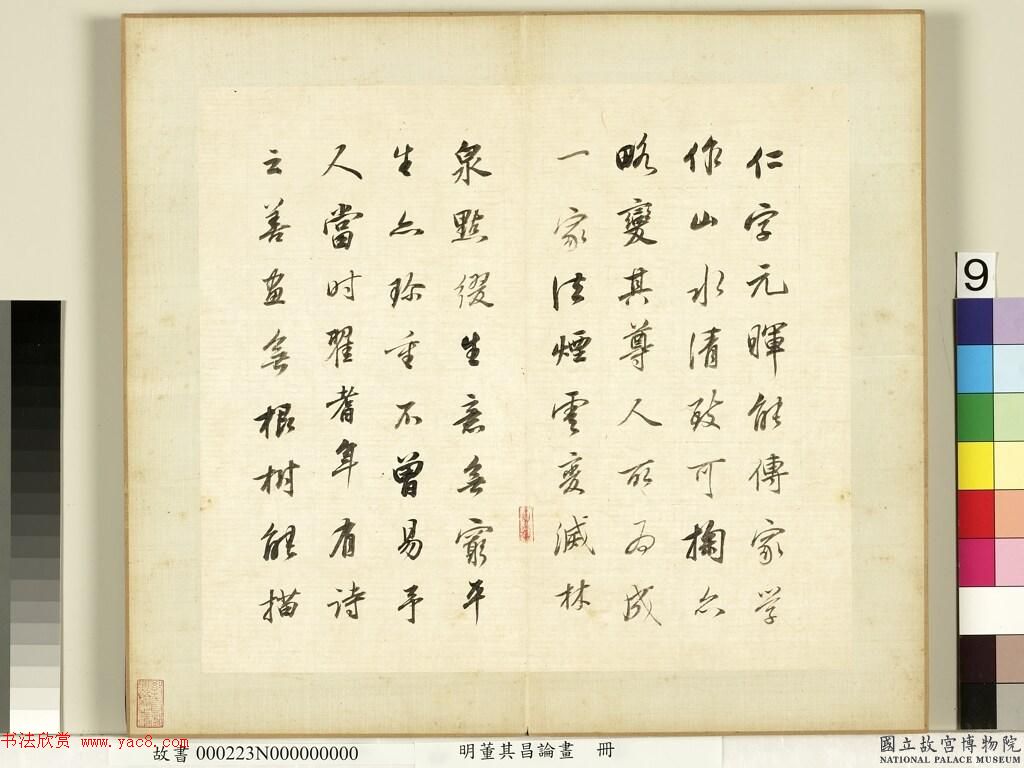 仁字元暉能傳家学
作山水清致可掬亦
略變其尊人所为成
一家法煙雲变滅林
泉點缀生意無窮平
生亦珍重不曾易予
人當时翟耆年有詩
云善畫無根树能描
9
书法欣赏 www.yac8.com
故書 000223N000000000
明董其昌論畫 冊
國立故宮博物院
NATIONAL PALACE MUSEUM